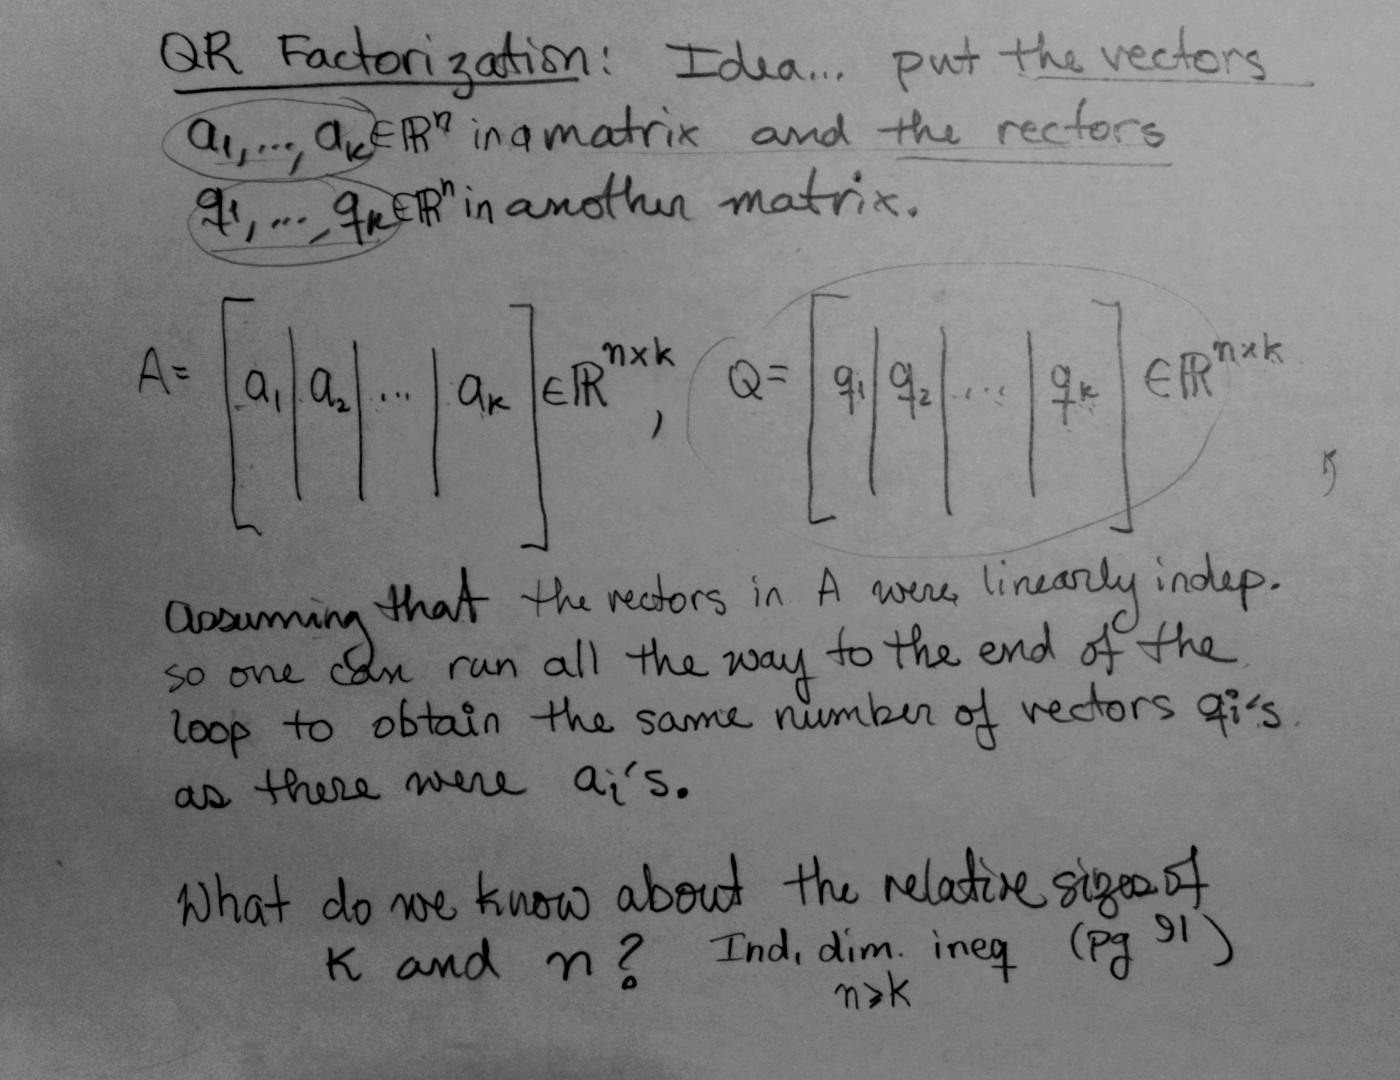 QR Factorization: Idea... put the vectors
a₁, ..., aₖ ∈ ℝⁿ in a matrix and the vectors
q₁, ..., qₖ ∈ ℝⁿ in another matrix.
A = [a₁ | a₂ | ... | aₖ] ∈ ℝⁿˣᵏ, Q = [q₁ | q₂ | ... | qₖ] ∈ ℝⁿˣᵏ
Assuming that the vectors in A were linearly indep.
so one can run all the way to the end of the
loop to obtain the same number of vectors qᵢ's
as there were aᵢ's.
What do we know about the relative sizes of
K and n? Ind. dim. ineq (pg 91)
n ⩾ k